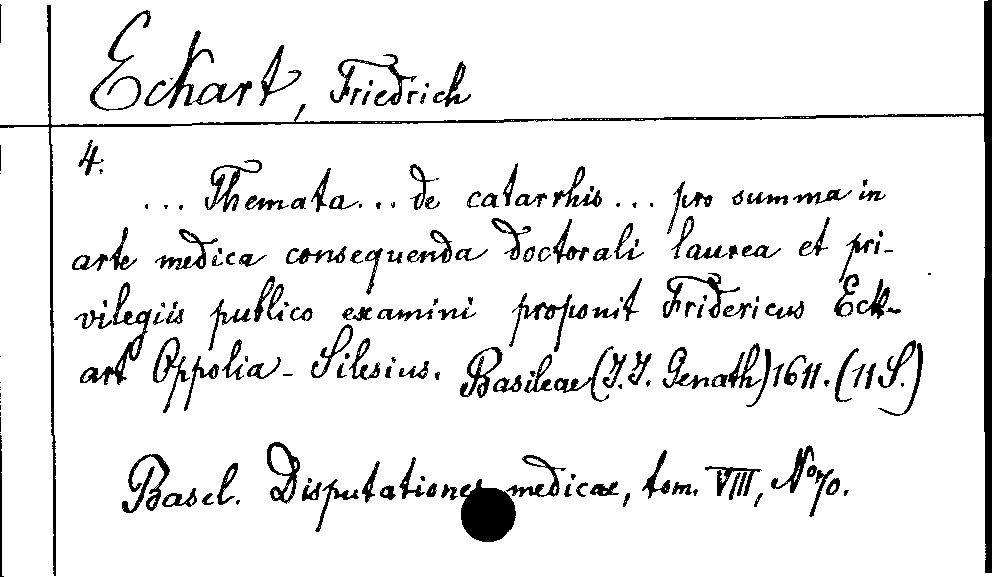 Eckart, Friedrich
4.
... Themata... de catarrhis... pro summa in
arte medica consequenda doctorali laurea et pri-
vilegiis publico examini proponit Fridericus Eck-
art Oppolia-Silesius. Basileae (J.J. Genath) 1611. (11 S.)
Basel. Disputationes medicae, tom. VIII, No 70.